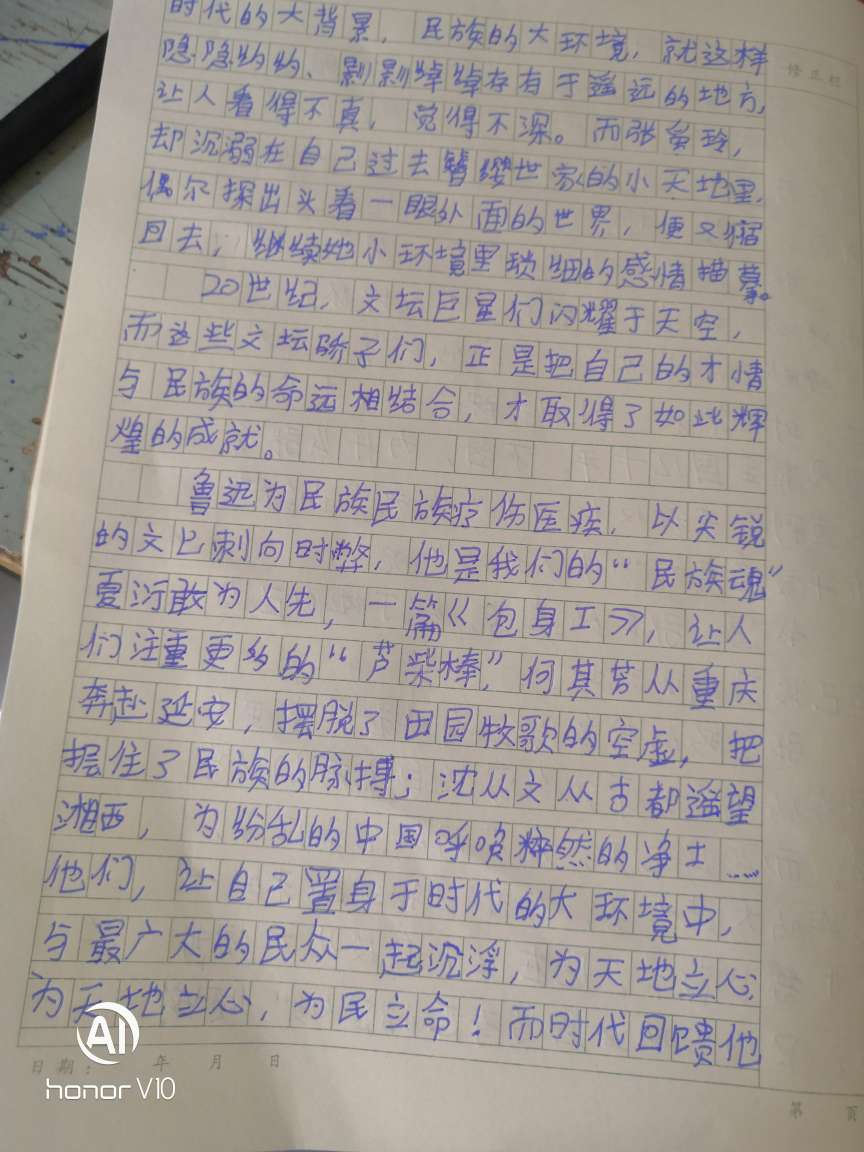 时代的大背景，民族的大环境，就这样
隐隐约约、影影绰绰存有于遥远的地方，
让人看得不真，觉得不深。而张爱玲，
却沉溺在自己过去簪缨世家的小天地里，
偶尔探出头看一眼外面的世界，便又缩
回去，继续她小环境里琐细的感情描摹。
20世纪，文坛巨星们闪耀于天空，
而这些文坛骄子们，正是把自己的才情
与民族的命运相结合，才取得了如此辉
煌的成就。
鲁迅为民族民族疗伤医疾，以尖锐
的文匕刺向时弊，他是我们的“民族魂”
夏衍敢为人先，一篇《包身工》，让人
们注重更多的“芦柴棒”，何其芳从重庆
奔赴延安，摆脱了田园牧歌的空虚，把
握住了民族的脉搏；沈从文从古都遥望
湘西，为纷乱的中国呼唤粹然的净土……
他们，让自己置身于时代的大环境中，
与最广大的民众一起沉浮，为天地立心，
为天地立心，为民立命！而时代回馈他
修正栏
日期：年月日
第 页
AI
honor V10